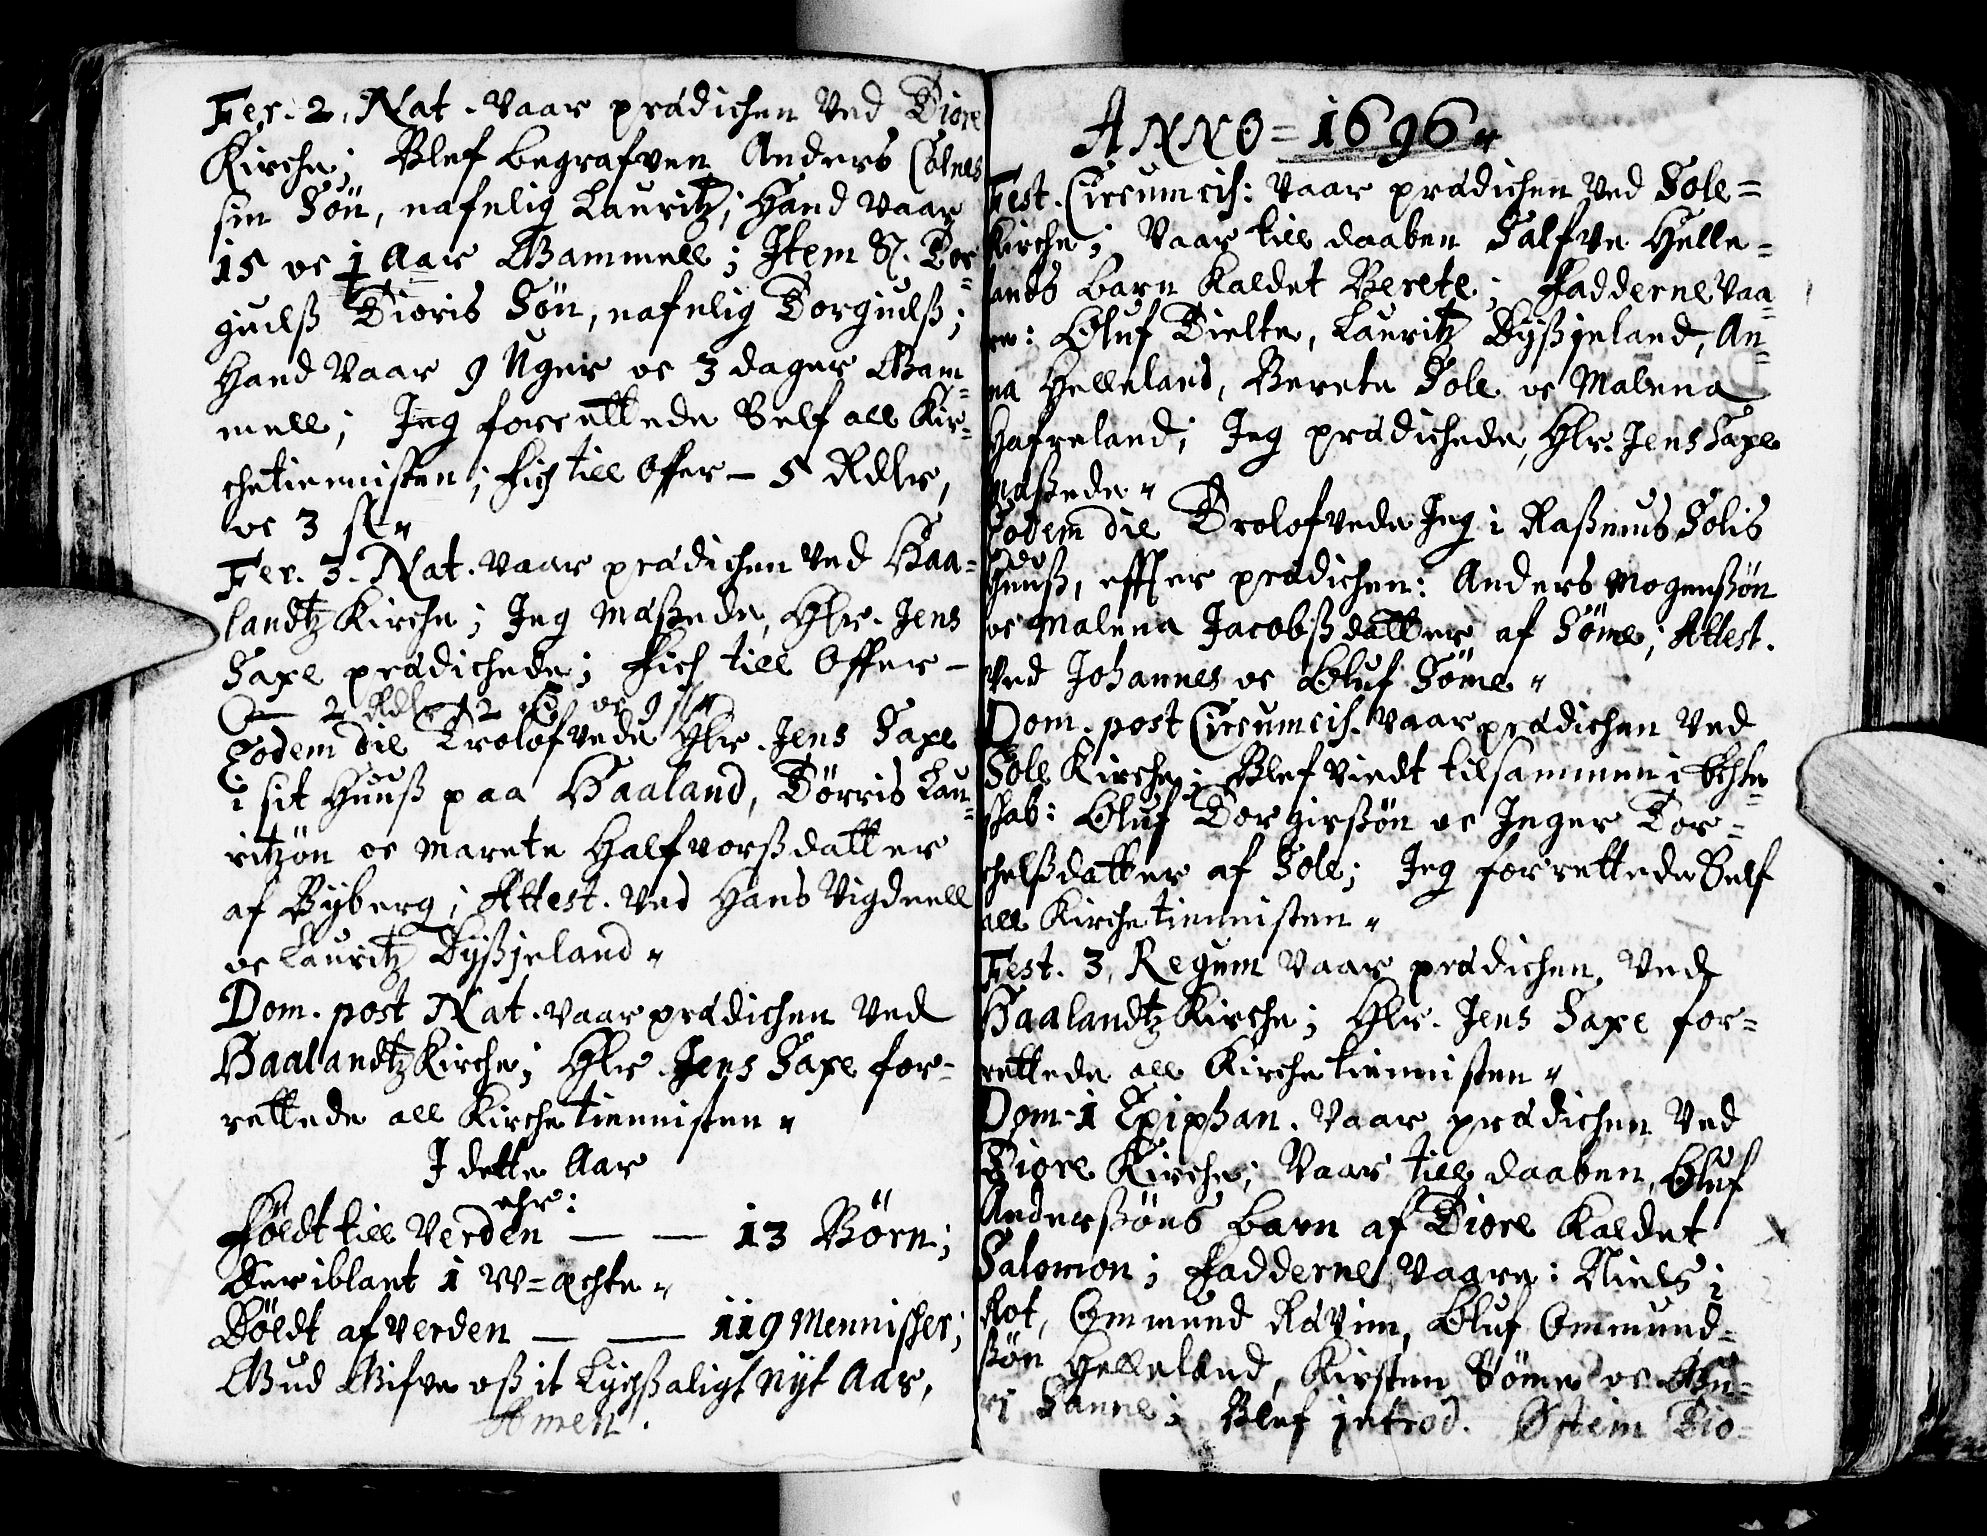 Fer. 2. Nat. vaar prædichen ved Tiore
Kirche; Blef begrafven Anders Colnes
sin Søn, nafnlig Lauritz; Hand vaar
15 oc ½ Aar Gammell; Item S. Tor-
gielß Tioris Søn, nafnlig Torgielß;
Hand vaar 9 Uger oc 3 dager Gam-
mell; Jeg forrettede Self all Kir-
chetiennisten; fich till Offer - 5 Rdlr,
oc 3 sl"
Fer. 3. Nat. vaar prædichen ved Haa-
landtz Kirche; Jeg Mæßede, Hlr. Jens
Saxe prædichede; Fich till Offer -
2 Rdlr 2 oc 9 sl"
Eodem die Trolofvede Hlr. Jens Saxe
i sit Huuß paa Haaland, Tørris Lau-
ritzøn oc Marete Halfvorßdatter
af Byberg; Attest. ved Hans Vigdeell
oc Lauritz Dyßjeland"
Dom. post Nat. vaar prædichen ved
Haalandtz Kirche; Hlr. Jens Saxe for-
rettede all Kirchetiennisten"
I dette Aar
ehr:
Føldt till Verden — — 13 Børn;
Der iblant 1 W=æchte"
Døldt af verden — — 119 Mennischer;
Gud Gifve oß it Lychßaligt Nyt Aar,
Amen.
ANNO = 1696"
Fest. Circumcis: vaar prædichen ved Sole=
Kirche; Vaar till daaben Salfve Helle-
lands barn Kaldet Berete; Fadderne vaa-
re: Oluf Tielte, Lauritz Dyßjeland, An-
na Helleland, Berete Sole oc Malena
Hafreland; Jeg prædichede, Hlr. Jens Saxe
Mæßede"
Eodem die Trolofvede Jeg i Raßmus Solis
Huuß, effter prædichen: Anders Mogenßøn
oc Malena Jacobßdatter af Sømme; Attest.
ved Johannes oc Oluf Sømme"
Dom. post Circumcis. vaar prædichen ved
Sole Kirche; Blef viedt tilsammen i Echte-
schab: Oluf Torgierßøn oc Inger Tor-
chelßdatter af Sole; Jeg forrettede Self
all Kirchetiennisten"
Fest. 3. Regum vaar prædichen ved
Haalandtz Kirche; Hlr. Jens Saxe for-
rettede all Kirchetiennisten"
Dom. 1 Epiphan. vaar prædichen ved
Tiore Kirche; Vaar till daaben, Oluf
Anderßøns barn af Tiore Kaldet
Salomon; Fadderne vaare: Niels i
Rot, Ommund Rævim, Oluf Ommund-
ßøn Helleland, Kirsten Sømme oc
Sanne; Blef introd. Østein Tio-